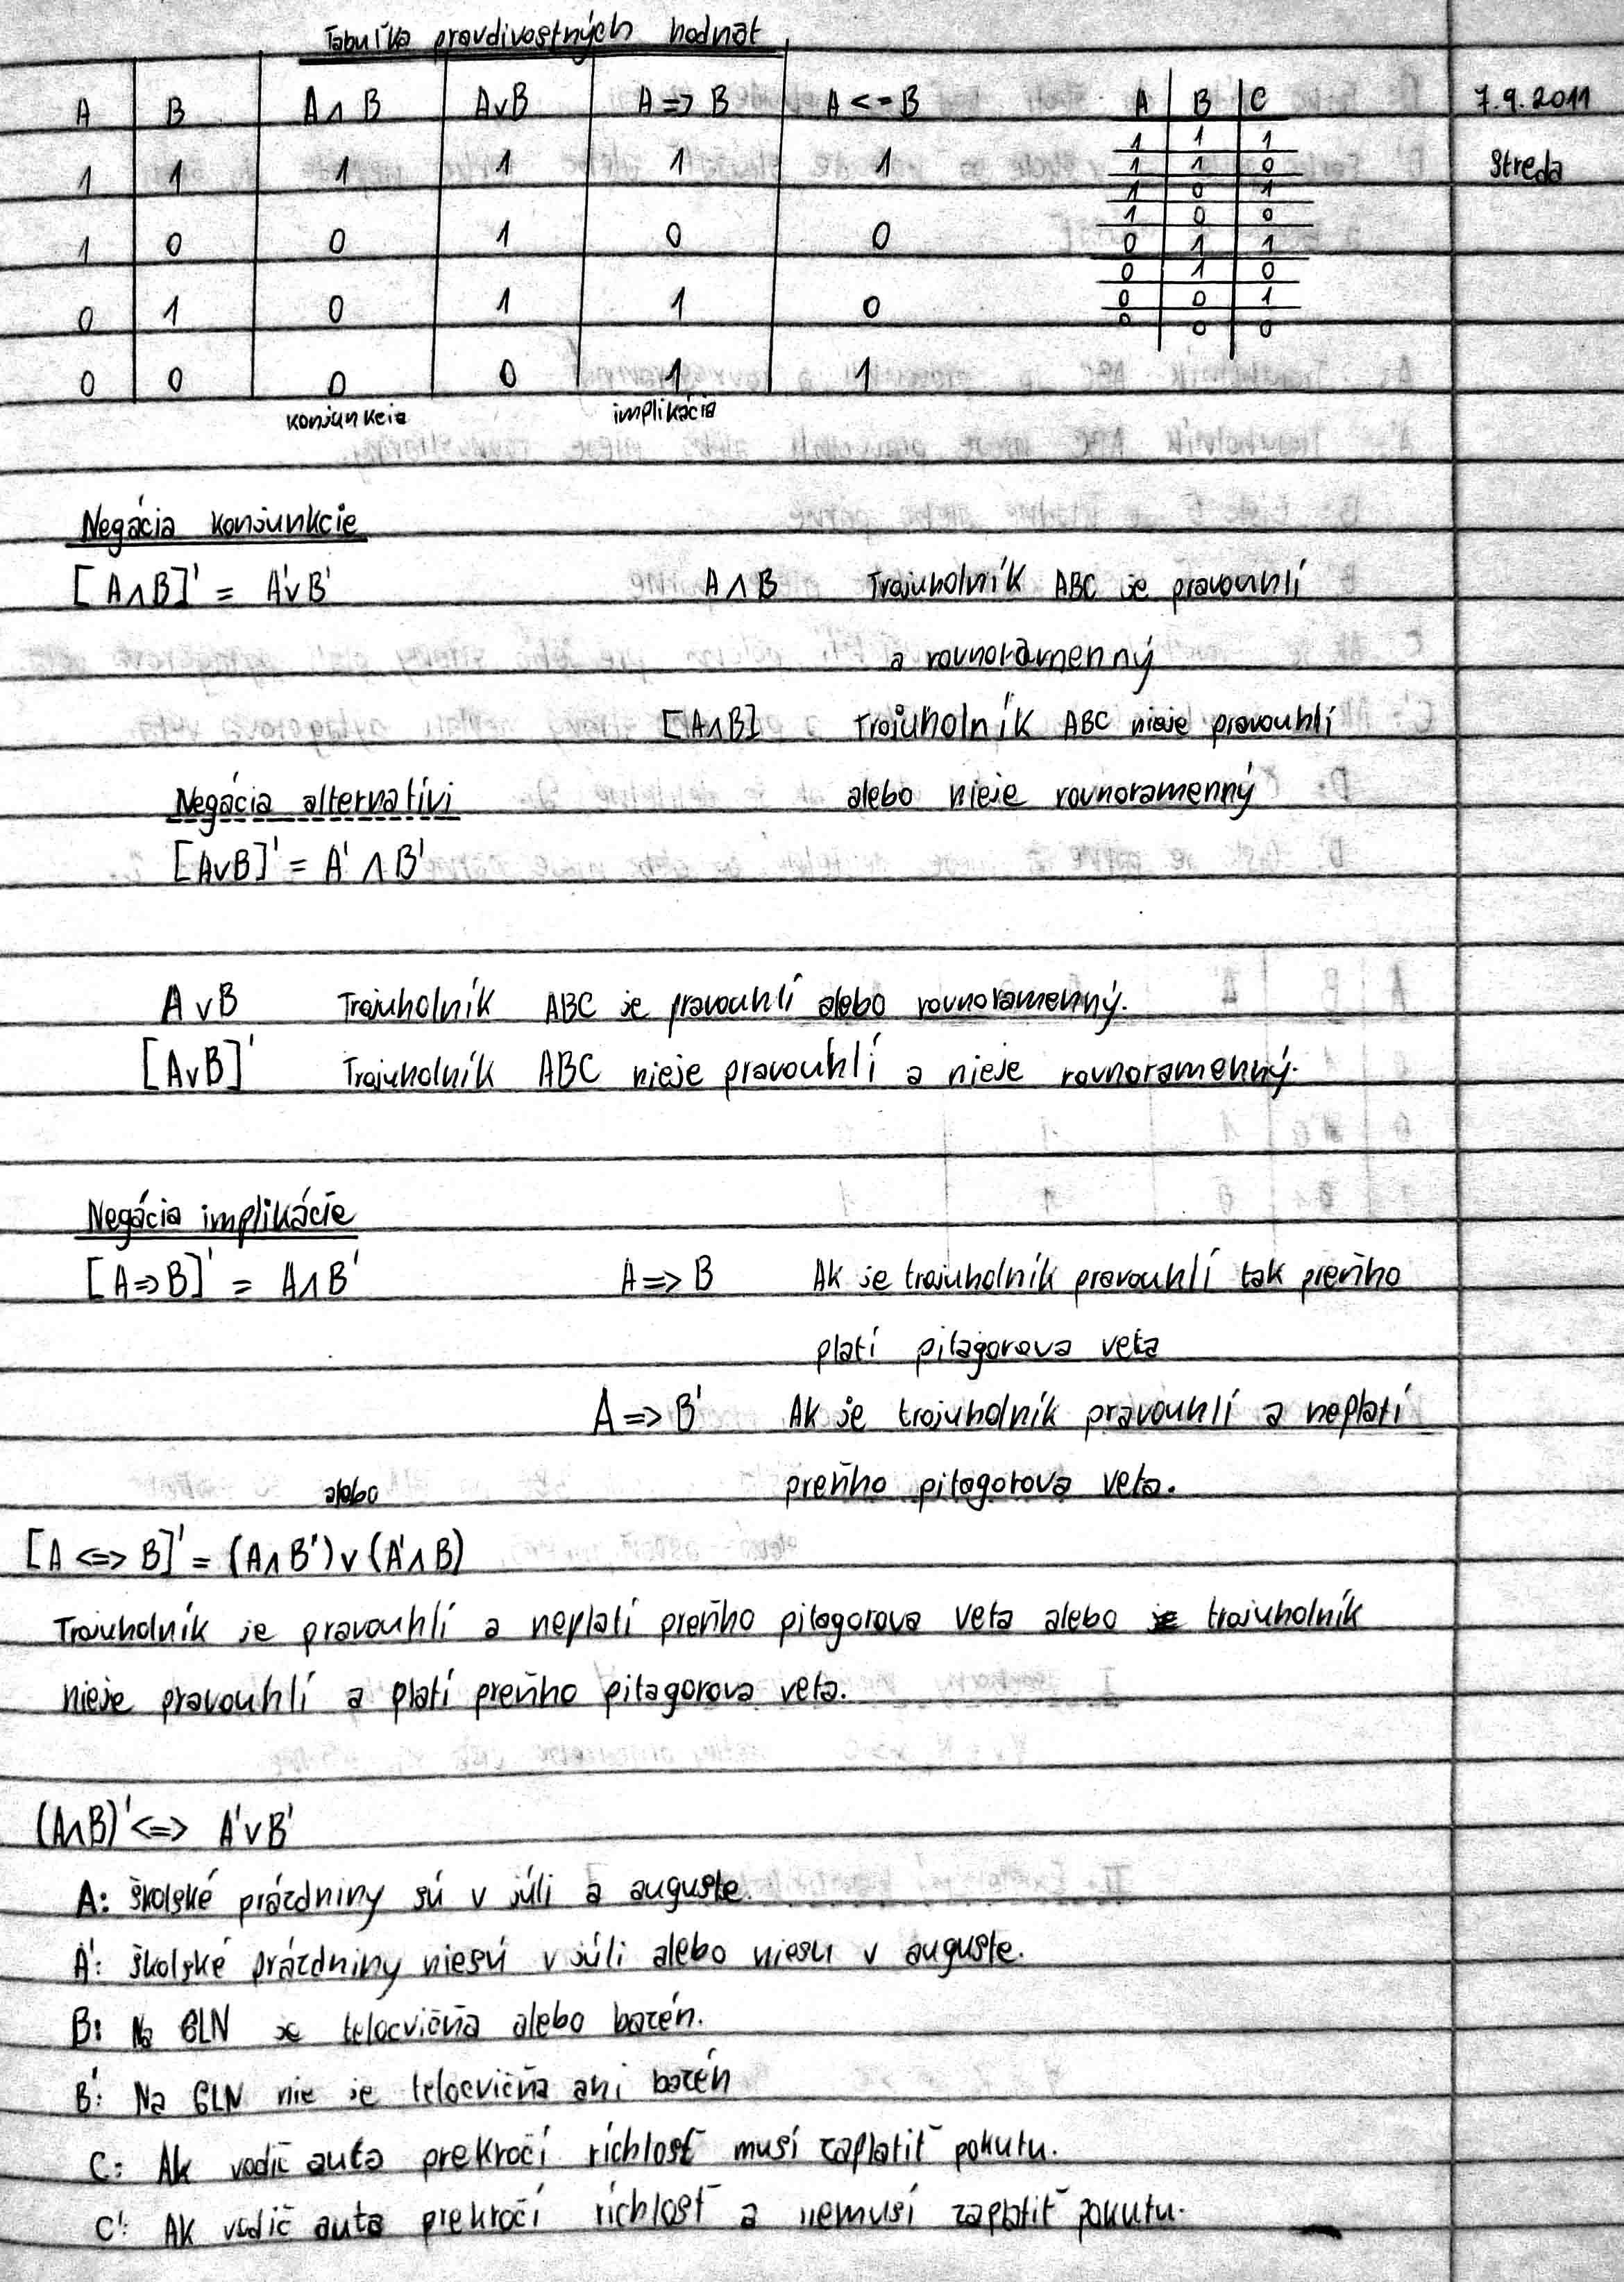 Tabuľka pravdivostných hodnôt
A B A∧B A∨B A => B A <=> B
1 1 1 1 1 1
1 0 0 1 0 0
0 1 0 1 1 0
0 0 0 0 1 1
konjunkcia implikácia
A B C
1 1 1
1 1 0
1 0 1
1 0 0
0 1 1
0 1 0
0 0 1
0 0 0
7.9.2011
Streda
Negácia konjunkcie
[A∧B]' = A'∨B' A∧B Trojuholník ABC je pravouhlí
a rovnoramenný
[A∧B] Trojuholník ABC nieje pravouhlí
Negácia alternatívi alebo nieje rovnoramenný
[A∨B]' = A' ∧ B'
A∨B Trojuholník ABC je pravouhlí alebo rovnoramenný.
[A∨B]' Trojuholník ABC nieje pravouhlí a nieje rovnoramenný.
Negácia implikácie
[A=>B]' = A∧B' A=>B Ak je trojuholník pravouhlí tak preňho
platí pitagorova veta
A=>B' Ak je trojuholník pravouhlí a neplatí
alebo preňho pitagorova veta.
[A <=> B]' = (A∧B')∨(A'∧B)
Trojuholník je pravouhlí a neplatí preňho pitagorova veta alebo trojuholník
nieje pravouhlí a platí preňho pitagorova veta.
(A∧B)' <=> A'∨B'
A: školské prázdniny sú v júli a auguste.
A': školské prázdniny niesú v júli alebo niesu v auguste.
B: Na GLN je telocvičňa alebo bazén.
B': Na GLN nie je telocvičňa ani bazén
C: Ak vodič auta prekročí richlosť musí zaplatiť pokutu.
C': Ak vodič auta prekročí richlosť a nemusí zaplatiť pokutu.